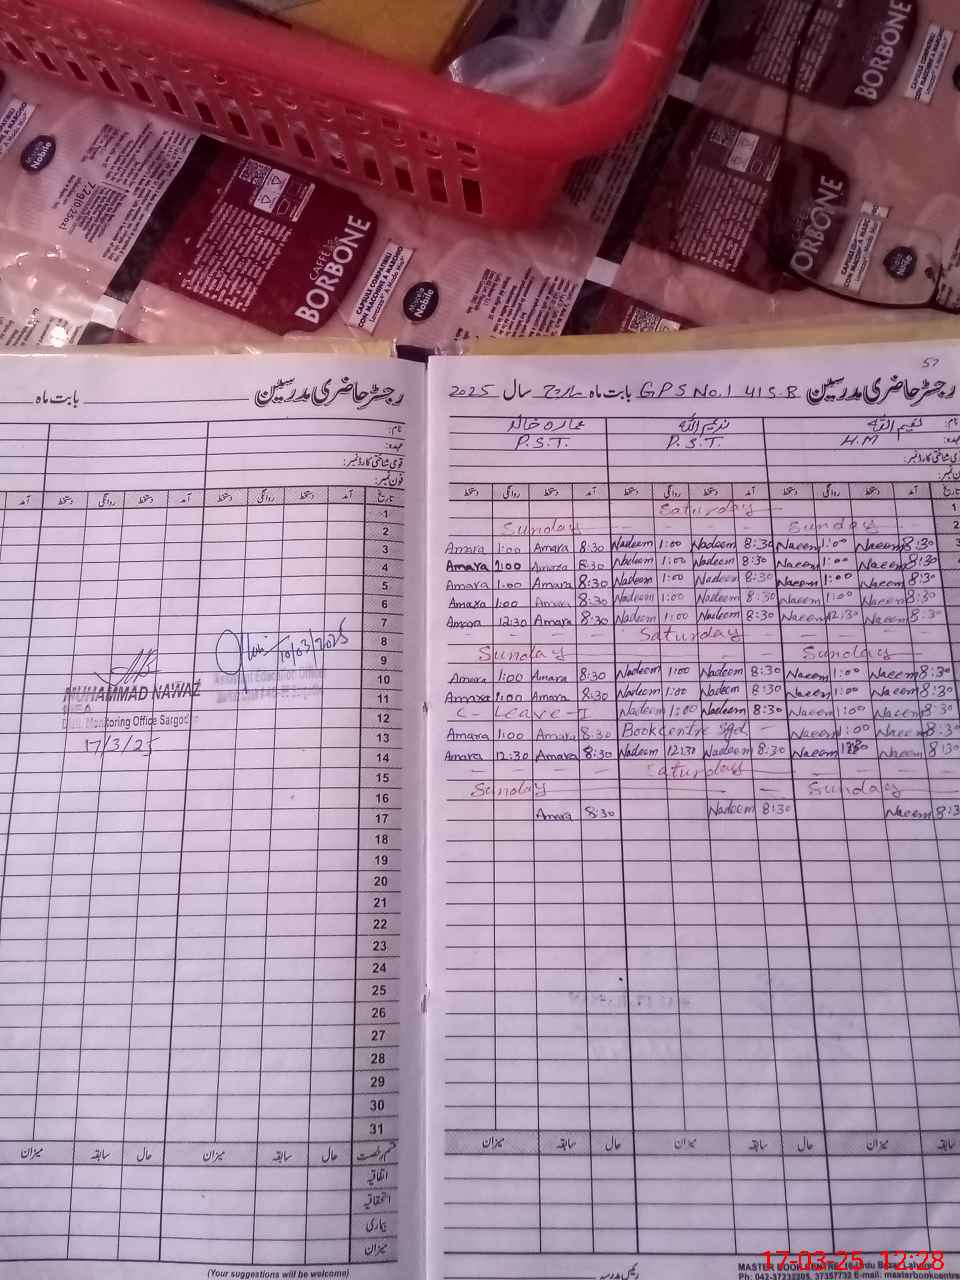 CAFFÈ
BORBONE
CAPSULE COMPATIBILI
CON MACCHINE A MARCHIO
Miscela
Nobile
BORBONE
7.2g
57
رجسٹر حاضری مدرسین بابت ماہ
رجسٹر حاضری مدرسین GPS No.1 41 S.B بابت ماہ مارچ سال 2025
نام: نعیم اللہ ندیم اللہ عمارہ خالد
عہدہ: H.M P.S.T. P.S.T.
قومی شناختی کارڈ نمبر:
فون نمبر:
تاریخ آمد دستخط روانگی دستخط آمد دستخط روانگی دستخط آمد
آمد دستخط روانگی دستخط آمد دستخط روانگی دستخط آمد دستخط روانگی دستخط
1 Saturday
2 Sunday Sunday
3 Amara 1:00 Amara 8:30 Nadeem 1:00 Nadeem 8:30 Naeem 1:00 Naeem 8:30
4 Amara 1:00 Amara 8:30 Nadeem 1:00 Nadeem 8:30 Naeem 1:00 Naeem 8:30
5 Amara 1:00 Amara 8:30 Nadeem 1:00 Nadeem 8:30 Naeem 1:00 Naeem 8:30
6 Amara 1:00 Amara 8:30 Nadeem 1:00 Nadeem 8:30 Naeem 1:00 Naeem 8:30
7 Amara 12:30 Amara 8:30 Nadeem 1:00 Nadeem 8:30 Naeem 12:30 Naeem 8:30
8 Saturday
9 Sunday Sunday
10 Amara 1:00 Amara 8:30 Nadeem 1:00 Nadeem 8:30 Naeem 1:00 Naeem 8:30
11 Amara 1:00 Amara 8:30 Nadeem 1:00 Nadeem 8:30 Naeem 1:00 Naeem 8:30
12 C - Leave - I Nadeem 1:00 Nadeem 8:30 Naeem 1:00 Naeem 8:30
13 Amara 1:00 Amara 8:30 Book centre Sgd. Naeem 1:00 Naeem 8:30
14 Amara 12:30 Amara 8:30 Nadeem 12:30 Nadeem 8:30 Naeem Naeem 8:30
15 Saturday
16 Sunday Sunday
17 Amara 8:30 Nadeem 8:30 Naeem 8:30
18
19
20
21
22
23
24
25
26
27
28
29
30
31
10/03/2025
Assistant Education Officer
MUHAMMAD NAWAZ
Distt. Monitoring Office Sargodha
17/3/25
قسم رخصت حال سابقہ میزان حال سابقہ میزان
سابقہ میزان حال سابقہ میزان حال سابقہ میزان
اتفاقیہ
استحقاقیہ
بیماری
میزان
(Your suggestions will be welcome)
رئیس مدرسہ
MASTER BOOK CENTRE, 16-Urdu Bazar Lahore
Ph: 042-37232205, 37357733 E-mail: masterbookcentre
17-03-25 12:28